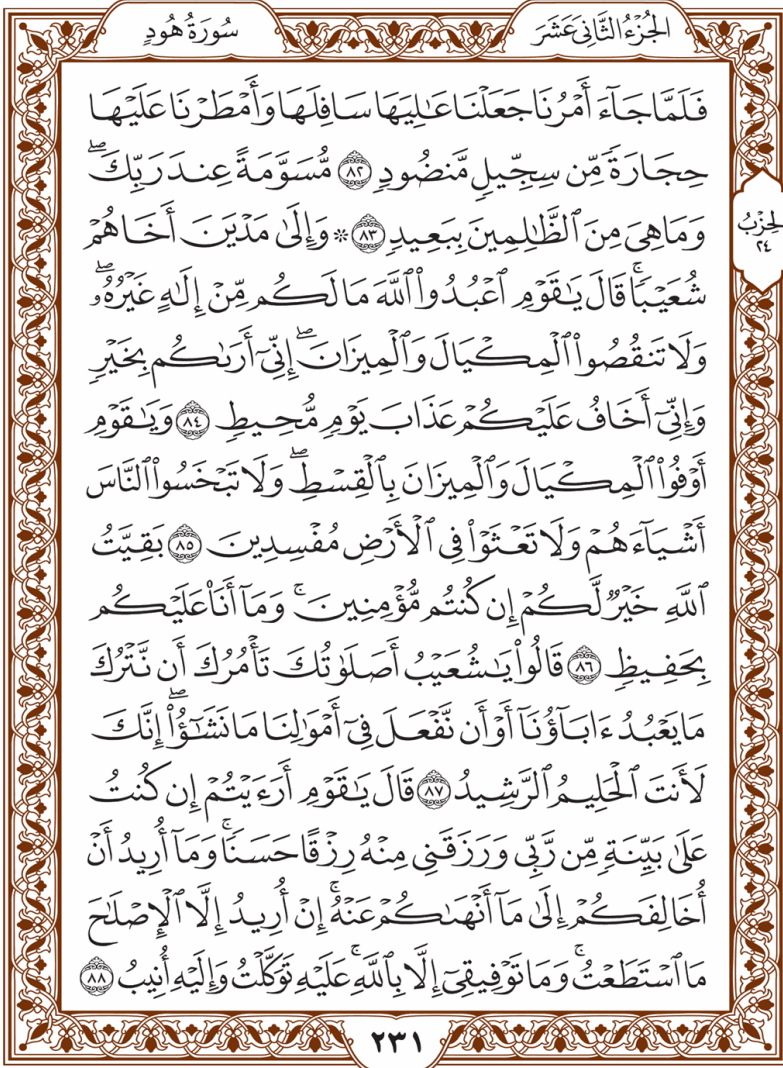 الجُزْءُ الثَّانِي عَشَرَ
سُورَةُ هُودٍ
فَلَمَّا جَآءَ أَمْرُنَا جَعَلْنَا عَٰلِيَهَا سَافِلَهَا وَأَمْطَرْنَا عَلَيْهَا
حِجَارَةٗ مِّن سِجِّيلٖ مَّنضُودٖ ٨٢ مُّسَوَّمَةً عِندَ رَبِّكَۖ
وَمَا هِيَ مِنَ ٱلظَّٰلِمِينَ بِبَعِيدٖ ٨٣ ۞ وَإِلَىٰ مَدۡيَنَ أَخَاهُمۡ
شُعَيۡبٗاۚ قَالَ يَٰقَوۡمِ ٱعۡبُدُواْ ٱللَّهَ مَا لَكُم مِّنۡ إِلَٰهٍ غَيۡرُهُۥۖ
وَلَا تَنقُصُواْ ٱلۡمِكۡيَالَ وَٱلۡمِيزَانَۖ إِنِّيٓ أَرَىٰكُم بِخَيۡرٖ
وَإِنِّيٓ أَخَافُ عَلَيۡكُمۡ عَذَابَ يَوۡمٖ مُّحِيطٖ ٨٤ وَيَٰقَوۡمِ
أَوۡفُواْ ٱلۡمِكۡيَالَ وَٱلۡمِيزَانَ بِٱلۡقِسۡطِۖ وَلَا تَبۡخَسُواْ ٱلنَّاسَ
أَشۡيَآءَهُمۡ وَلَا تَعۡثَوۡاْ فِي ٱلۡأَرۡضِ مُفۡسِدِينَ ٨٥ بَقِيَّتُ
ٱللَّهِ خَيۡرٞ لَّكُمۡ إِن كُنتُم مُّؤۡمِنِينَۚ وَمَآ أَنَا۠ عَلَيۡكُم
بِحَفِيظٖ ٨٦ قَالُواْ يَٰشُعَيۡبُ أَصَلَوٰتُكَ تَأۡمُرُكَ أَن نَّتۡرُكَ
مَا يَعۡبُدُ ءَابَآؤُنَآ أَوۡ أَن نَّفۡعَلَ فِيٓ أَمۡوَٰلِنَا مَا نَشَٰٓؤُاْۖ إِنَّكَ
لَأَنتَ ٱلۡحَلِيمُ ٱلرَّشِيدُ ٨٧ قَالَ يَٰقَوۡمِ أَرَءَيۡتُمۡ إِن كُنتُ
عَلَىٰ بَيِّنَةٖ مِّن رَّبِّي وَرَزَقَنِي مِنۡهُ رِزۡقًا حَسَنٗاۚ وَمَآ أُرِيدُ أَنۡ
أُخَالِفَكُمۡ إِلَىٰ مَآ أَنۡهَىٰكُمۡ عَنۡهُۚ إِنۡ أُرِيدُ إِلَّا ٱلۡإِصۡلَٰحَ
مَا ٱسۡتَطَعۡتُۚ وَمَا تَوۡفِيقِيٓ إِلَّا بِٱللَّهِۚ عَلَيۡهِ تَوَكَّلۡتُ وَإِلَيۡهِ أُنِيبُ ٨٨
لحِزْبُ
٢٤
٢٣١